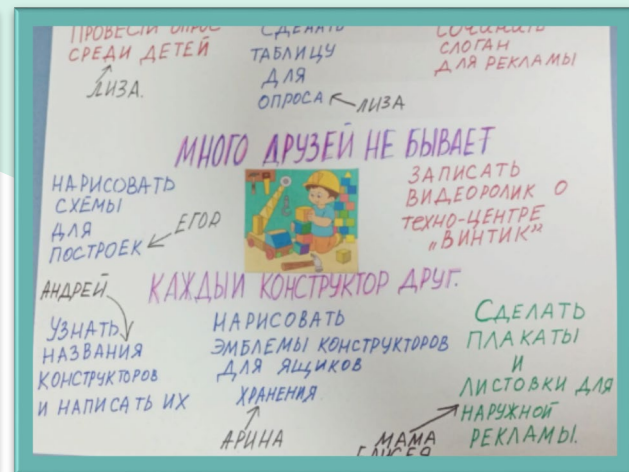 ПРОВЕСТИ ОПРОС
СРЕДИ ДЕТЕЙ
ЛИЗА.
СДЕЛАТЬ
ТАБЛИЦУ
ДЛЯ
ОПРОСА
ЛИЗА
СОЧИНИТЬ
СЛОГАН
ДЛЯ РЕКЛАМЫ
МНОГО ДРУЗЕЙ НЕ БЫВАЕТ
НАРИСОВАТЬ
СХЕМЫ
ДЛЯ
ПОСТРОЕК
ЕГОР
ЗАПИСАТЬ
ВИДЕОРОЛИК О
ТЕХНО-ЦЕНТРЕ
„ВИНТИК”
КАЖДЫЙ КОНСТРУКТОР ДРУГ.
АНДРЕЙ
УЗНАТЬ
НАЗВАНИЯ
КОНСТРУКТОРОВ
И НАПИСАТЬ ИХ
НАРИСОВАТЬ
ЭМБЛЕМЫ КОНСТРУКТОРОВ
ДЛЯ ЯЩИКОВ
ХРАНЕНИЯ
АРИНА
СДЕЛАТЬ
ПЛАКАТЫ
И
ЛИСТОВКИ ДЛЯ
НАРУЖНОЙ
РЕКЛАМЫ.
МАМА